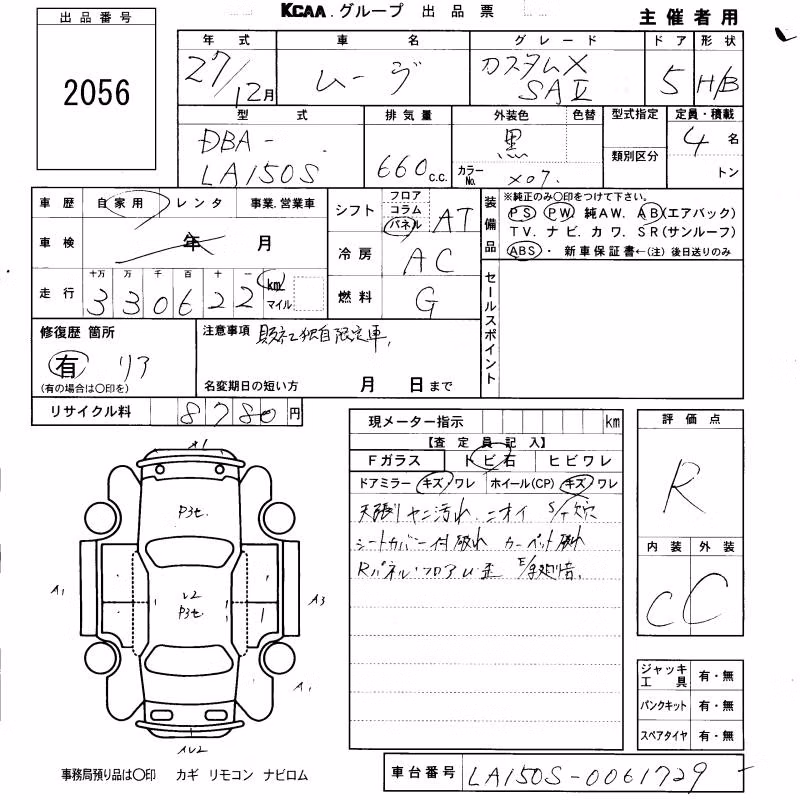 KCAA.グループ 出品票
主催者用
出品番号
2056
年式 車名 グレード ドア 形状
27/12月 ムーヴ カスタムX SAⅡ 5 H/B
型式 排気量 外装色 色替 型式指定 定員・積載
DBA-
LA150S 660c.c. 黒 4名
カラーNo. X07. 類別区分 トン
車歴 自家用 レンタ 事業.営業車
車検 年 月
走行 十万 万 千 百 十 一
3 3 0 6 2 2 km マイル
シフト フロア コラム パネル AT
冷房 AC
燃料 G
装備品
※純正のみ○印をつけて下さい。
PS PW 純AW. AB(エアバック)
TV. ナビ. カワ. SR(サンルーフ)
ABS・新車保証書←(注)後日送りのみ
セールスポイント
修復歴 箇所
有 リア
(有の場合は○印を)
注意事項 販社独自限定車.
名変期日の短い方 月 日まで
リサイクル料 8780円
現メーター指示 km
【査定員記入】
Fガラス トビ石 ヒビワレ
ドアミラー キズ/ワレ ホイール(CP) キズ/ワレ
天張リヤニ汚れ ニオイ S/ナ穴
シートカバー付 破れ カーペット破れ
Rパネル・フロアム歪
評価点
R
内装 外装
C C
A1
P3セ.
A1
レ2
P3セ.
A3
A1
AU2
ジャッキ工具 有・無
パンクキット 有・無
スペアタイヤ 有・無
事務局預り品は○印 カギ リモコン ナビロム
車台番号 LA150S-0061729